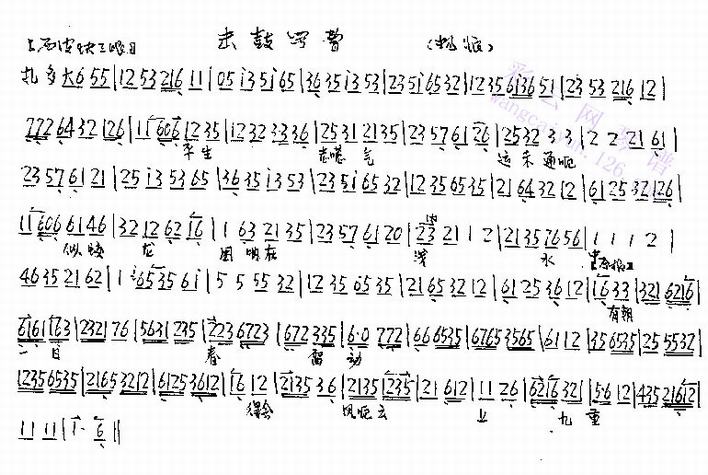 击鼓骂曹
扎多大6 55|12 53 216 11|05 i3 5i 65|36 35 i3 53|235i 6532|1235 6i36 51|23 53 216 12|
777 64 32 126|11 606 12 35|12 32 33 36|2531 2135|23 57 61 26|25 32 3 3|2 2 21 61|
平生 志 气 运未通呃
23 57 61 21|25 i3 53 65|36 35 i3 53|235i 65 32|1235 6535|21 64 32 12|61 25 32 126|
11 606 61 46|32 12 62 16|1 63 21 35|23 57 61 20|23 21 1 2|2135 76 56|1 1 1 2|
似蛟 龙 困 在 浅 水
4635 2162|1 65 35 61|5 5 55 32|1235 6535|2165 3212|6125 3612|16 33|321 6216|
有朝
6161 163|2321 76|5631 235|7223 6723|672 335|6·0 777|66 6535|6765 3565|61 12|35 6535|25 5532|
一日 春 雷 动
1235 6535|2165 3212|6125 3612|16 12|2135 36|2135 235|21 612|11 26|6216 321|5·6 12|435 21612|
得会 风呃云 上 九 重
11 11|1· 6||